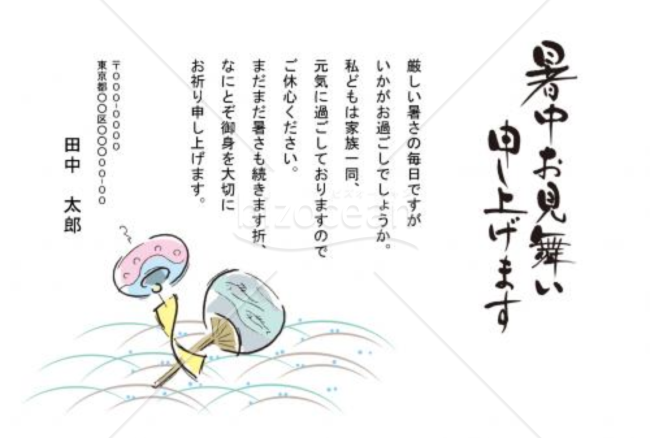 暑中お見舞い
申し上げます
厳しい暑さの毎日ですが
いかがお過ごしでしょうか。
私どもは家族一同、
元気に過ごしておりますので
ご休心ください。
まだまだ暑さも続きます折、
なにとぞ御身を大切に
お祈り申し上げます。
〒000-0000
東京都〇〇区〇〇〇00-00
田中 太郎
bizocean